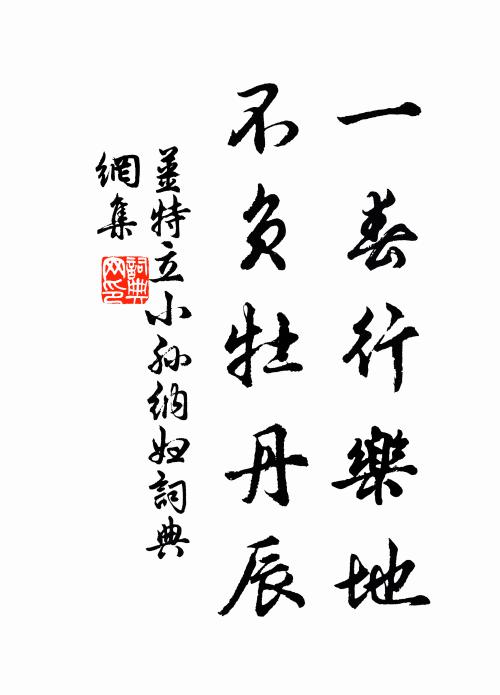 一春行樂地
不負牡丹辰
姜特立小孫納婦詞典
網集
詞典
网印